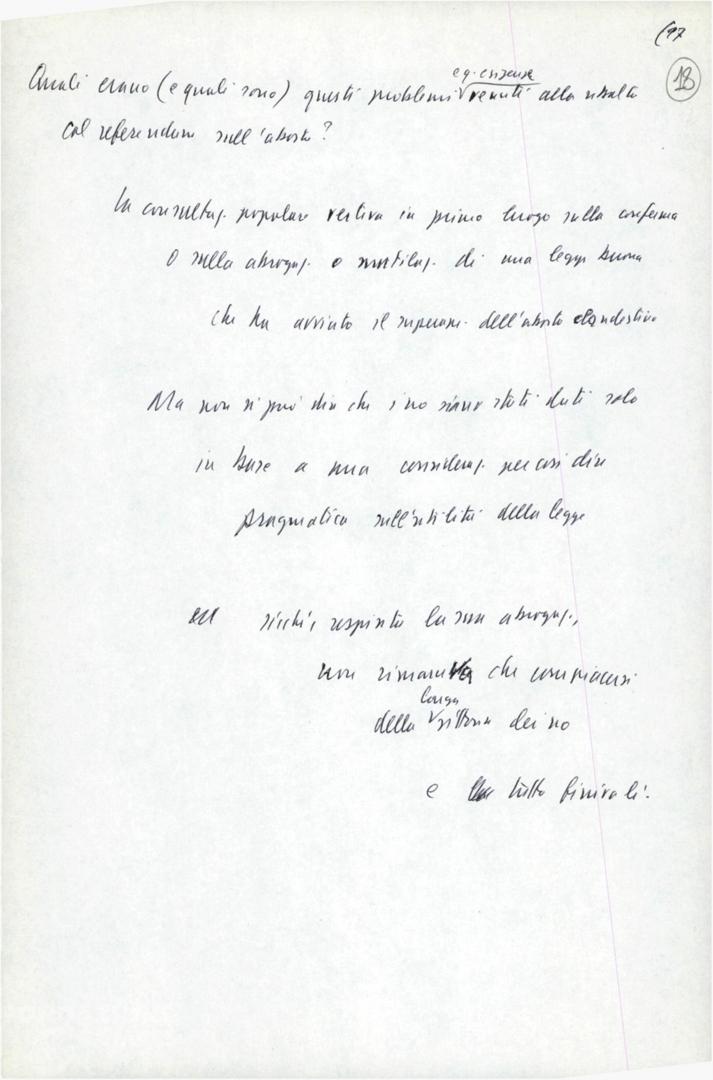 (97
18
Quali erano (e quali sono) questi problemi venuti alla ribalta
e q. esigenze
col referendum sull'aborto?
La consultaz. popolare verteva in primo luogo sulla conferma
o sulla abrogaz. o mutilaz. di una legge buona
che ha avviato il superam. dell'aborto clandestino
Ma non si può dire che i no siano stati dati solo
in base a una consideraz. per così dire
pragmatica sull'utilità della legge
sicché, respinta la sua abrogaz.,
non rimaneva che compiacersi
della vittoria dei no
e tutto finiva lì.